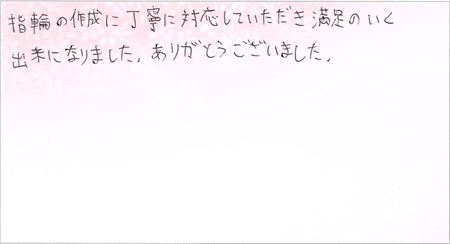 指輪の作成に丁寧に対応していただき満足のいく
出来になりました。ありがとうございました。